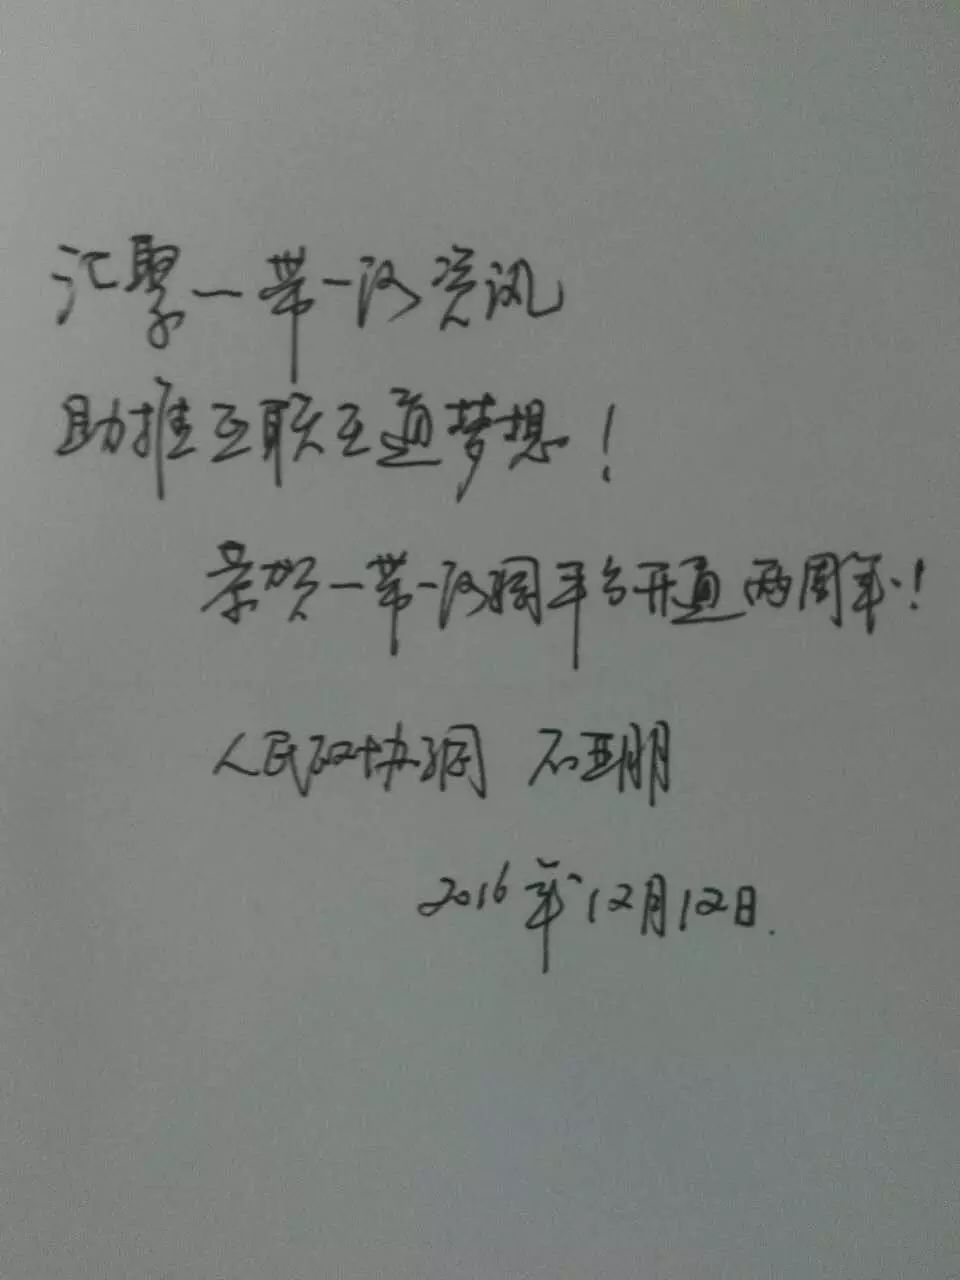 汇聚一带一路资讯
助推互联互通梦想！
恭贺一带一路网平台开通两周年！
人民政协网 石亚朋
2016年12月12日.